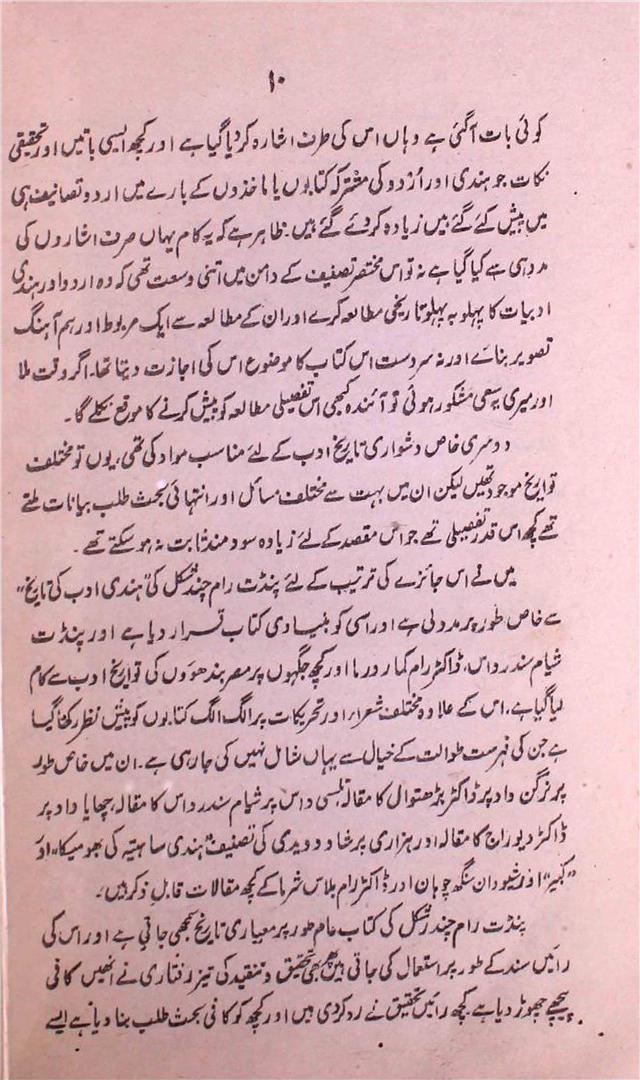 ۱۰
کوئی بات آگئی ہے وہاں اس کی طرف اشارہ کر دیا گیا ہے اور کچھ ایسی باتیں اور تحقیقی
نکات جو ہندی اور اُردو کی مشترکہ کتابوں یا ماخذوں کے بارے میں اردو تصانیف ہی
میں پیش کئے گئے ہیں زیادہ کر دئے گئے ہیں۔ ظاہر ہے کہ یہ کام یہاں صرف اشاروں کی
مدد ہی سے کیا گیا ہے نہ تو اس مختصر تصنیف کے دامن میں اتنی وسعت تھی کہ وہ اردو اور ہندی
ادبیات کا پہلو بہ پہلو تاریخی مطالعہ کرے اور ان کے مطالعہ سے ایک مربوط اور ہم آہنگ
تصویر بنائے اور نہ سردست اس کتاب کا موضوع اس کی اجازت دیتا تھا۔ اگر وقت ملا
اور میری یہ سعی مشکور ہوئی تو آئندہ کبھی اس تفصیلی مطالعہ کو پیش کرنے کا موقع نکلے گا۔
دوسری خاص دشواری تاریخ ادب کے لئے مناسب مواد کی تھی، یوں تو مختلف
تواریخ موجود تھیں لیکن ان میں بہت سے مختلف مسائل اور انتہائی بحث طلب بیانات ملتے
تھے کچھ اس قدر تفصیلی تھے جو اس مقصد کے لئے زیادہ سود مند ثابت نہ ہو سکتے تھے۔
میں نے اس جائزے کی ترتیب کے لئے پنڈت رام چندر شکل کی "ہندی ادب کی تاریخ"
سے خاص طور پر مدد لی ہے اور اسی کو بنیادی کتاب قرار دیا ہے اور پنڈت
شیام سندر داس، ڈاکٹر رام کمار ورما اور کچھ جگہوں پر مصر بندھوؤں کی تواریخ ادب سے کام
لیا گیا ہے، اس کے علاوہ مختلف شعراء اور تحریکات پر الگ الگ کتابوں کو پیش نظر رکھا گیا
ہے جن کی فہرست طوالت کے خیال سے یہاں شامل نہیں کی جا رہی ہے۔ ان میں خاص طور
پر نرگن واد پر ڈاکٹر بڑھتوال کا مقالہ تلسی داس پر شیام سندر داس کا مقالہ، چھایا واد پر
ڈاکٹر دیوراج کا مقالہ اور ہزاری پرشاد دویدی کی تصنیف "ہندی ساہتیہ کی بھومیکا" اور
"کبیر" اور شیودان سنگھ چوہان اور ڈاکٹر رام بلاس شرما کے کچھ مقالات قابل ذکر ہیں۔
پنڈت رام چندر شکل کی کتاب عام طور پر معیاری تاریخ سمجھی جاتی ہے اور اس کی
رائیں سند کے طور پر استعمال کی جاتی ہیں پھر بھی تحقیق و تنقید کی تیز رفتاری نے انھیں کافی
پیچھے چھوڑ دیا ہے۔ کچھ رائیں تحقیق نے رد کردی ہیں اور کچھ کو کافی بحث طلب بنا دیا ہے ایسے